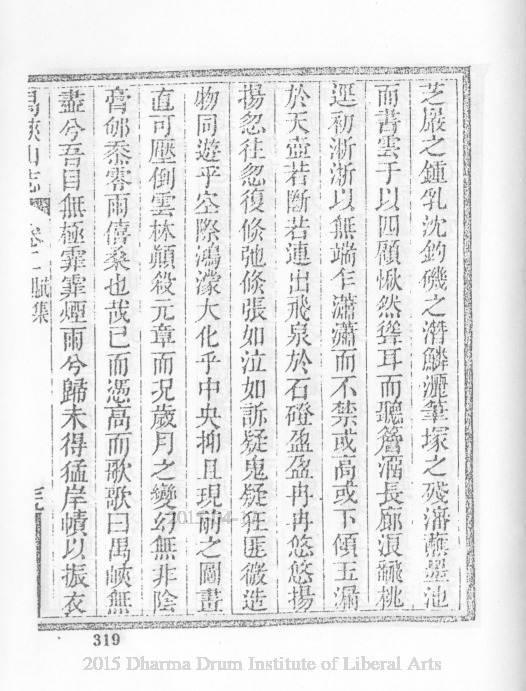 芝巖之鍾乳沈釣磯之潛鱗灑筆塚之殘瀋蘸墨池
而書雲于以四顧愀然聳耳而聽簷溜長廊浪翻桃
逕初淅淅以無端乍瀟瀟而不禁或高或下傾玉漏
於天壺若斷若連出飛泉於石磴盈盈冉冉悠悠揚
揚忽往忽復倐弛倐張如泣如訴疑鬼疑狂匪徽造
物同遊乎空際鴻濛大化乎中央抑且現前之圖畫
直可壓倒雲林顛殺元章而况歲月之變幻無非陰
膏郇黍零雨僖桑也哉已而憑高而歌歌曰禺峽無
盡兮吾目無極霏霏煙雨兮歸未得猛岸幘以振衣
禺峽山志 卷二 賦集
319
2015 Dharma Drum Institute of Liberal Arts